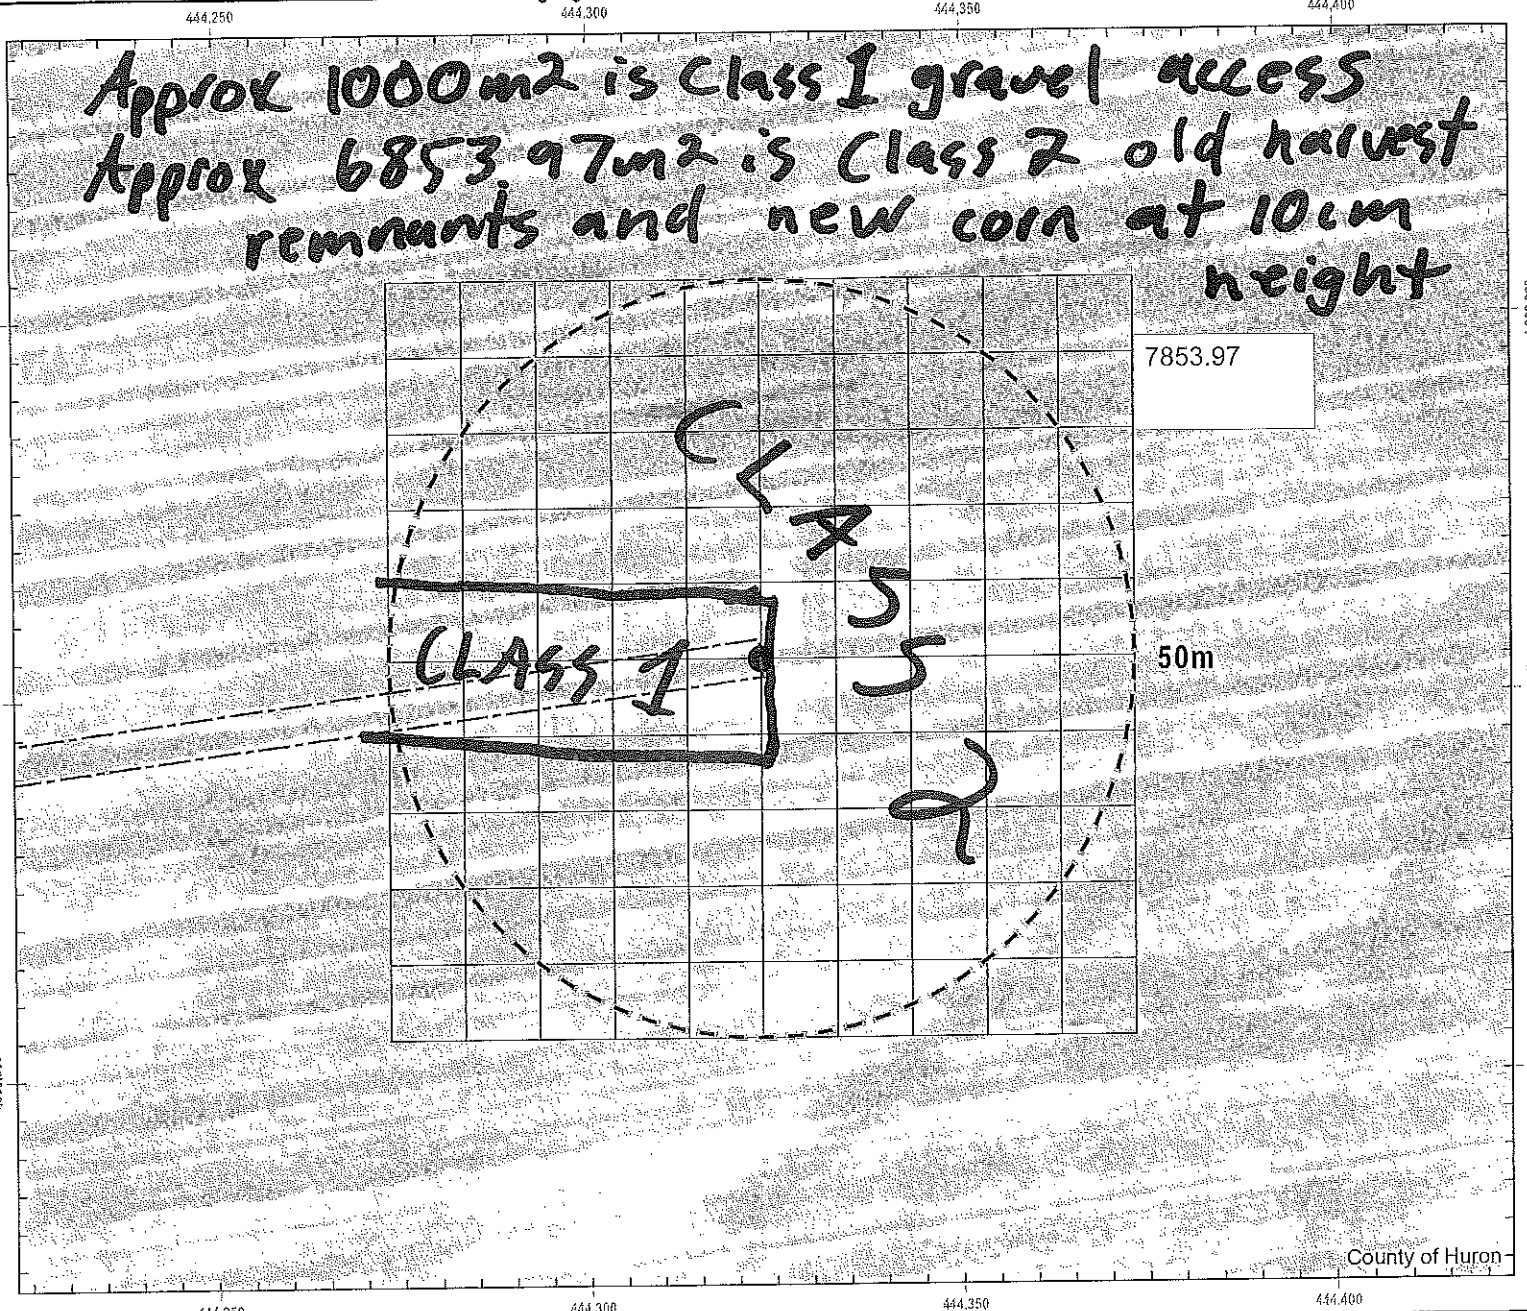 444,250 444,300 444,350 444,400
Approx 1000m2 is Class 1 gravel access
Approx 6853 97m2 is Class 2 old harvest
remnants and new corn at 10cm
height
7853.97
CLASS 2
CLASS 1
50m
County of Huron
444,300 444,350 444,400